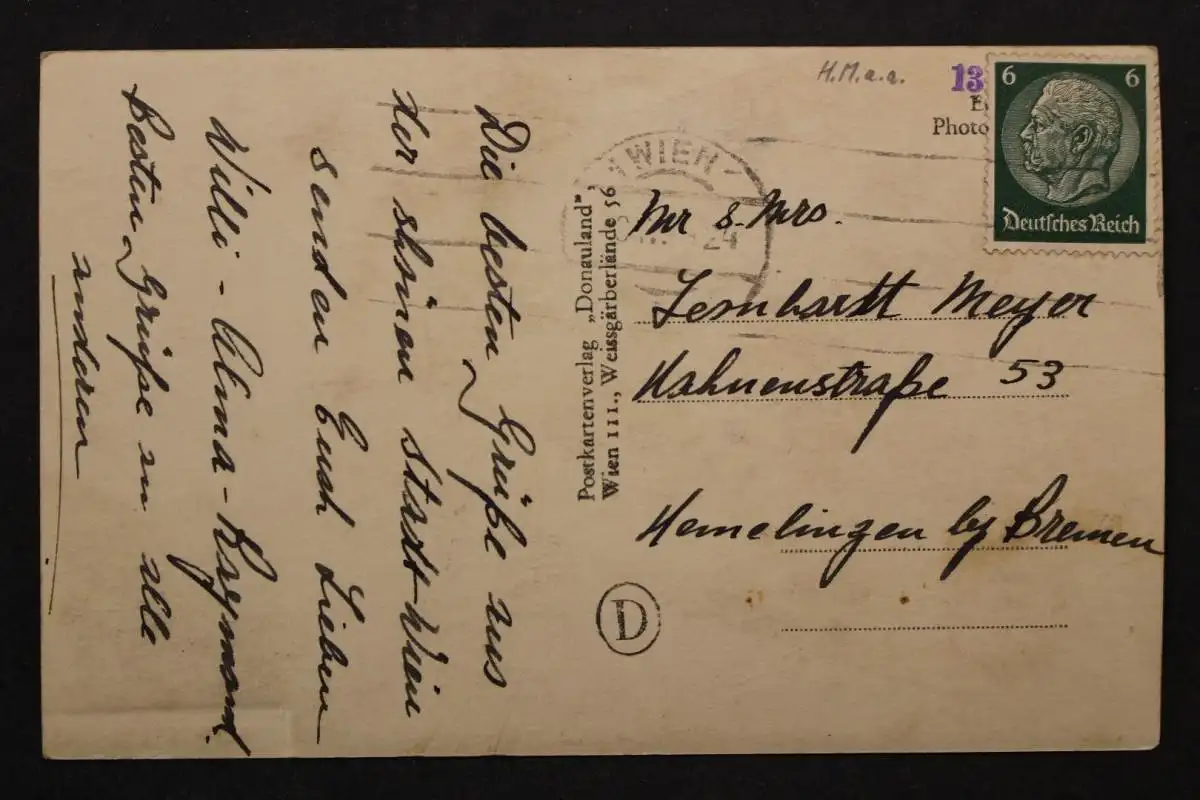 Die besten Grüße aus
der shönen Stadt Wien
senden Euch Lieben
Willi - Alma -
Besten Grüße an alle
anderen
Postkartenverlag „Donauland"
Wien III., Weissgärberlände 56
D
H.M.a.a.
13
Photo
WIEN
24
6 6
Deutsches Reich
Mr & Mrs.
Lernhardt Meyer
Hahnenstraße 53
Hemelingen by Bremen